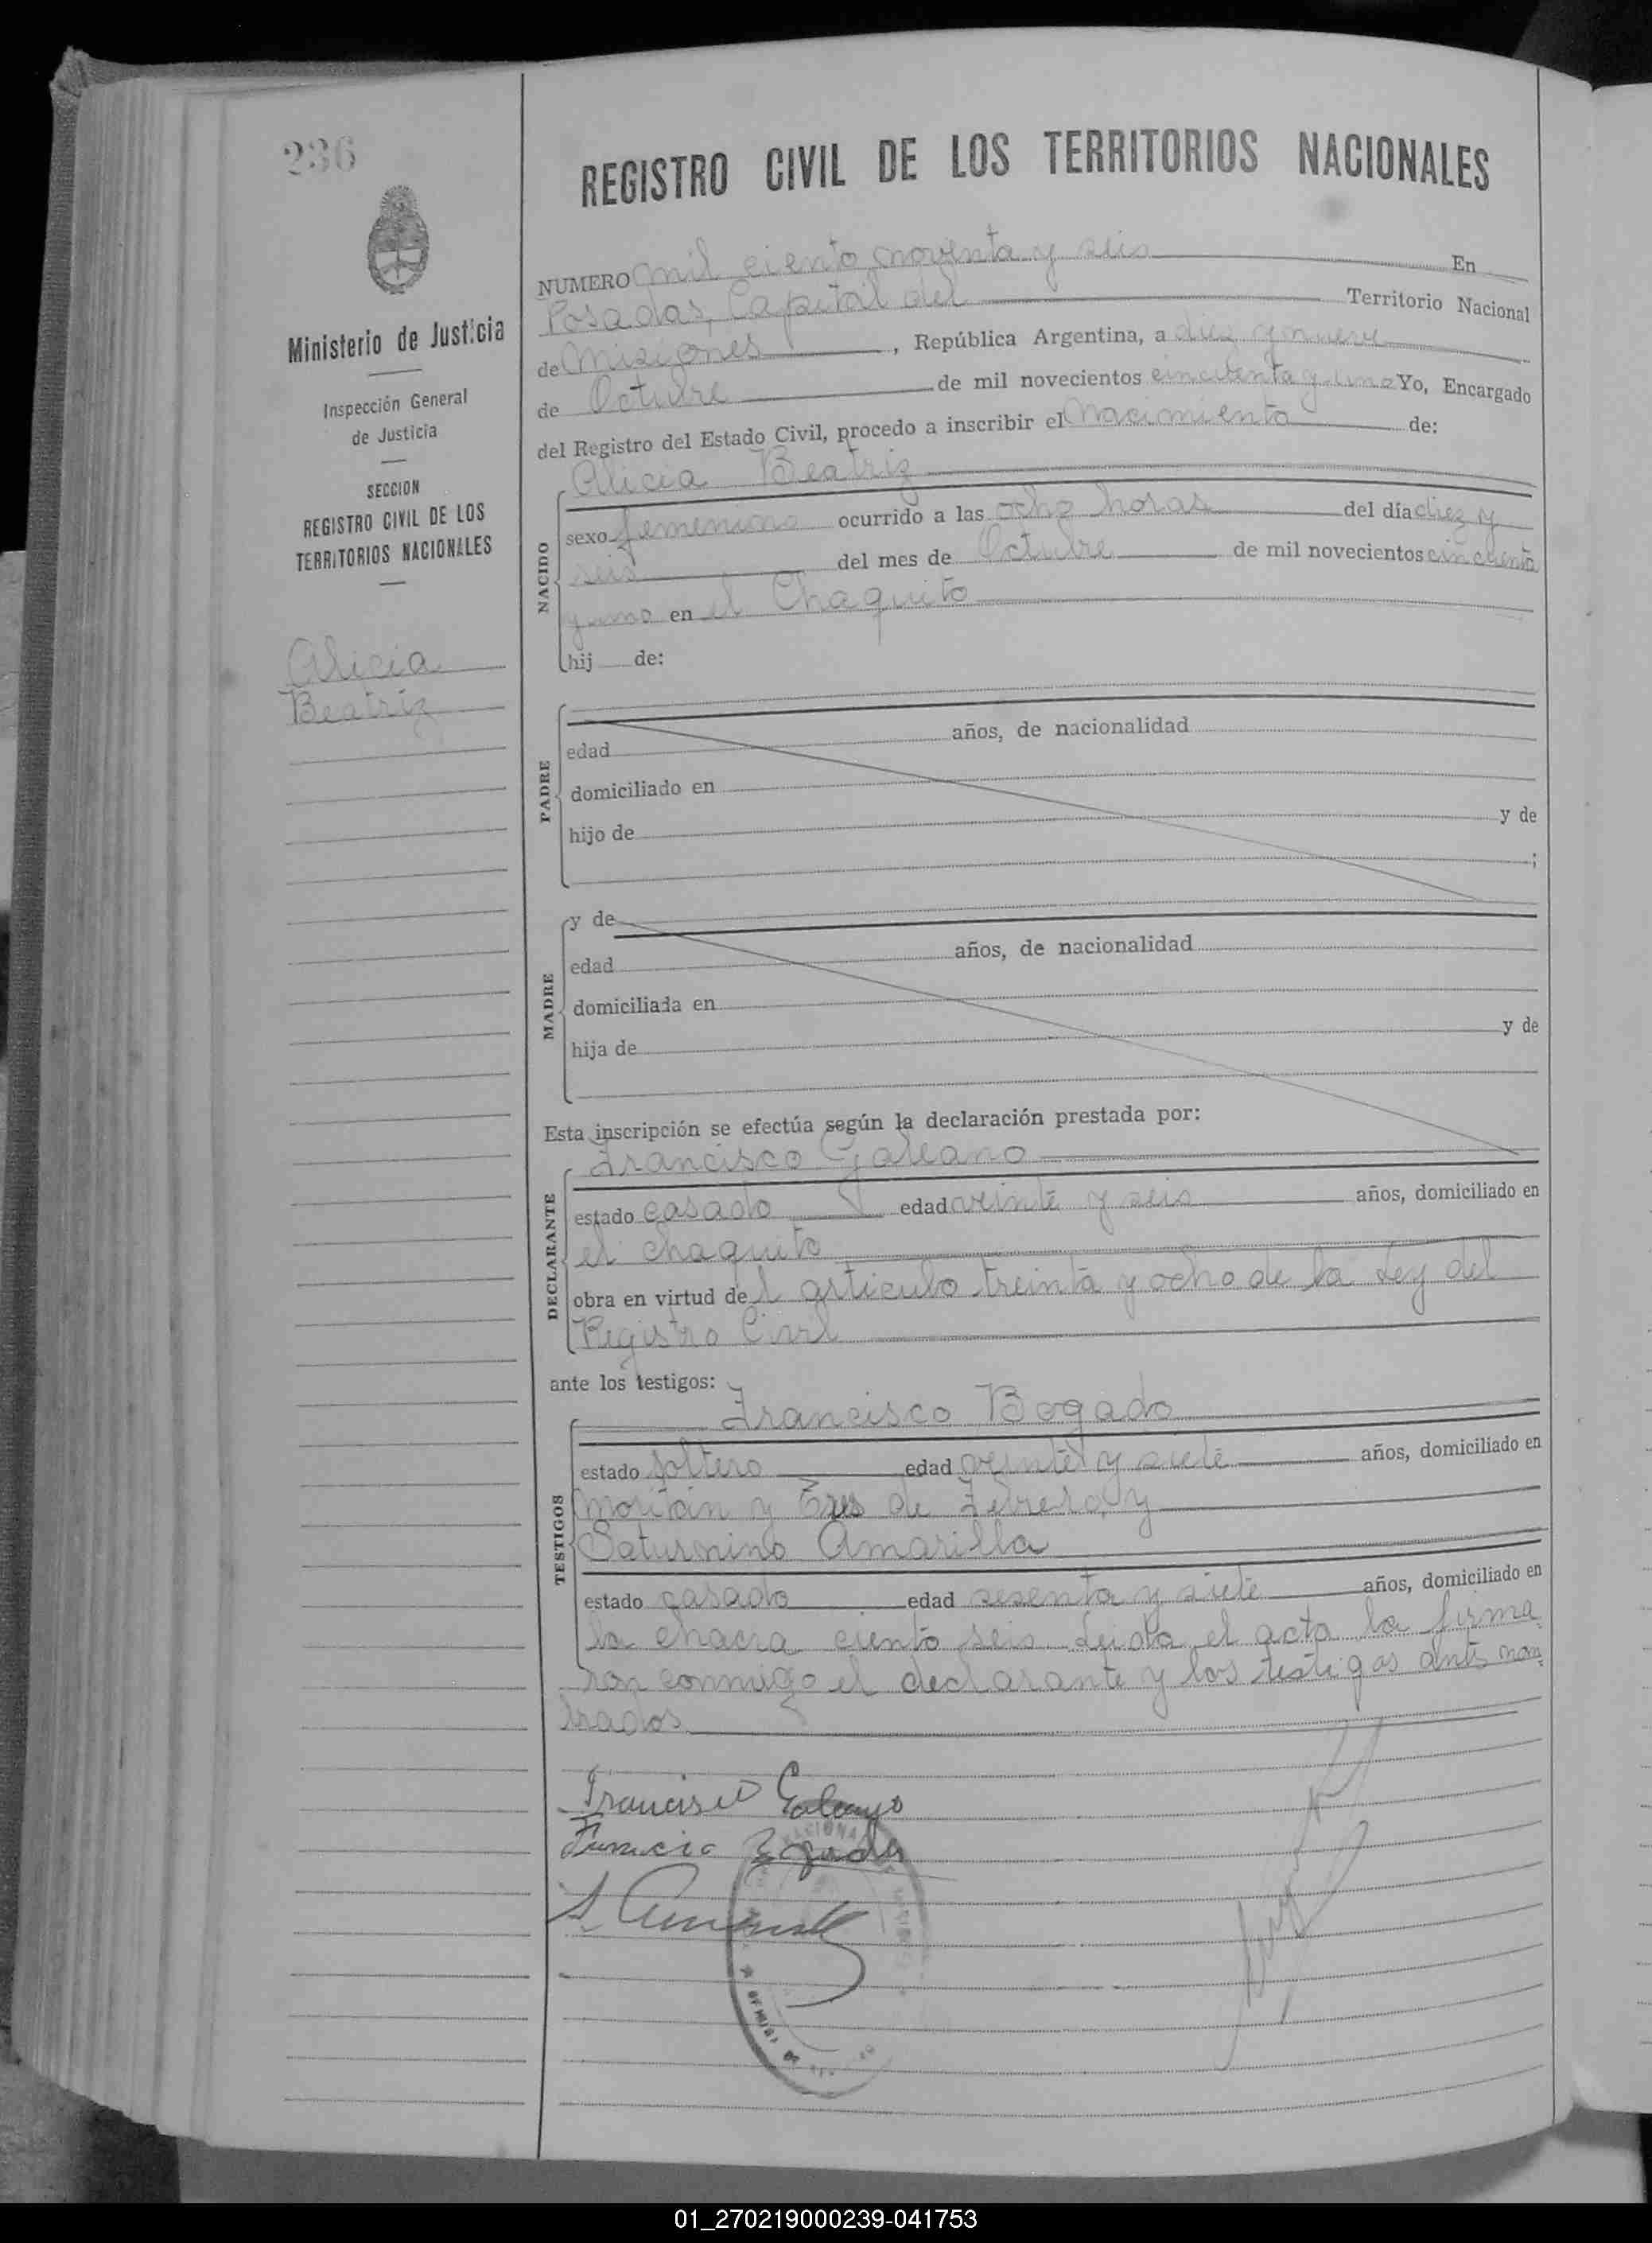 236
REGISTRO CIVIL DE LOS TERRITORIOS NACIONALES
Ministerio de Justicia
Inspección General
de Justicia
SECCION
REGISTRO CIVIL DE LOS
TERRITORIOS NACIONALES
Alicia
Beatriz
NUMERO mil ciento noventa y seis En
Posadas, Capital del Territorio Nacional
de Misiones, República Argentina, a diez y nueve
de Octubre de mil novecientos cincuenta y uno Yo, Encargado
del Registro del Estado Civil, procedo a inscribir el Nacimiento de:
NACIDO
Alicia Beatriz
sexo femenino ocurrido a las ocho horas del día diez y
seis del mes de Octubre de mil novecientos cincuenta
y uno en el Chaquito
hij de:
PADRE
edad años, de nacionalidad
domiciliado en
hijo de y de
;
MADRE
y de
edad años, de nacionalidad
domiciliada en
hija de y de
Esta inscripción se efectúa según la declaración prestada por:
DECLARANTE
Francisco Galeano
estado casado edad veinte y seis años, domiciliado en
el chaquito
obra en virtud del articulo treinta y ocho de la Ley del
Registro Civil
ante los testigos:
TESTIGOS
Francisco Bogado
estado soltero edad veinte y siete años, domiciliado en
Moritán y Tres de Febrero, y
Saturnino Amarilla
estado casado edad sesenta y siete años, domiciliado en
la chacra ciento seis. Leida el acta la firma
ron conmigo el declarante y los testigos ante nom
brados.
Francisco Galeano
Francisco Bogado
S. Amarilla
01_270219000239-041753